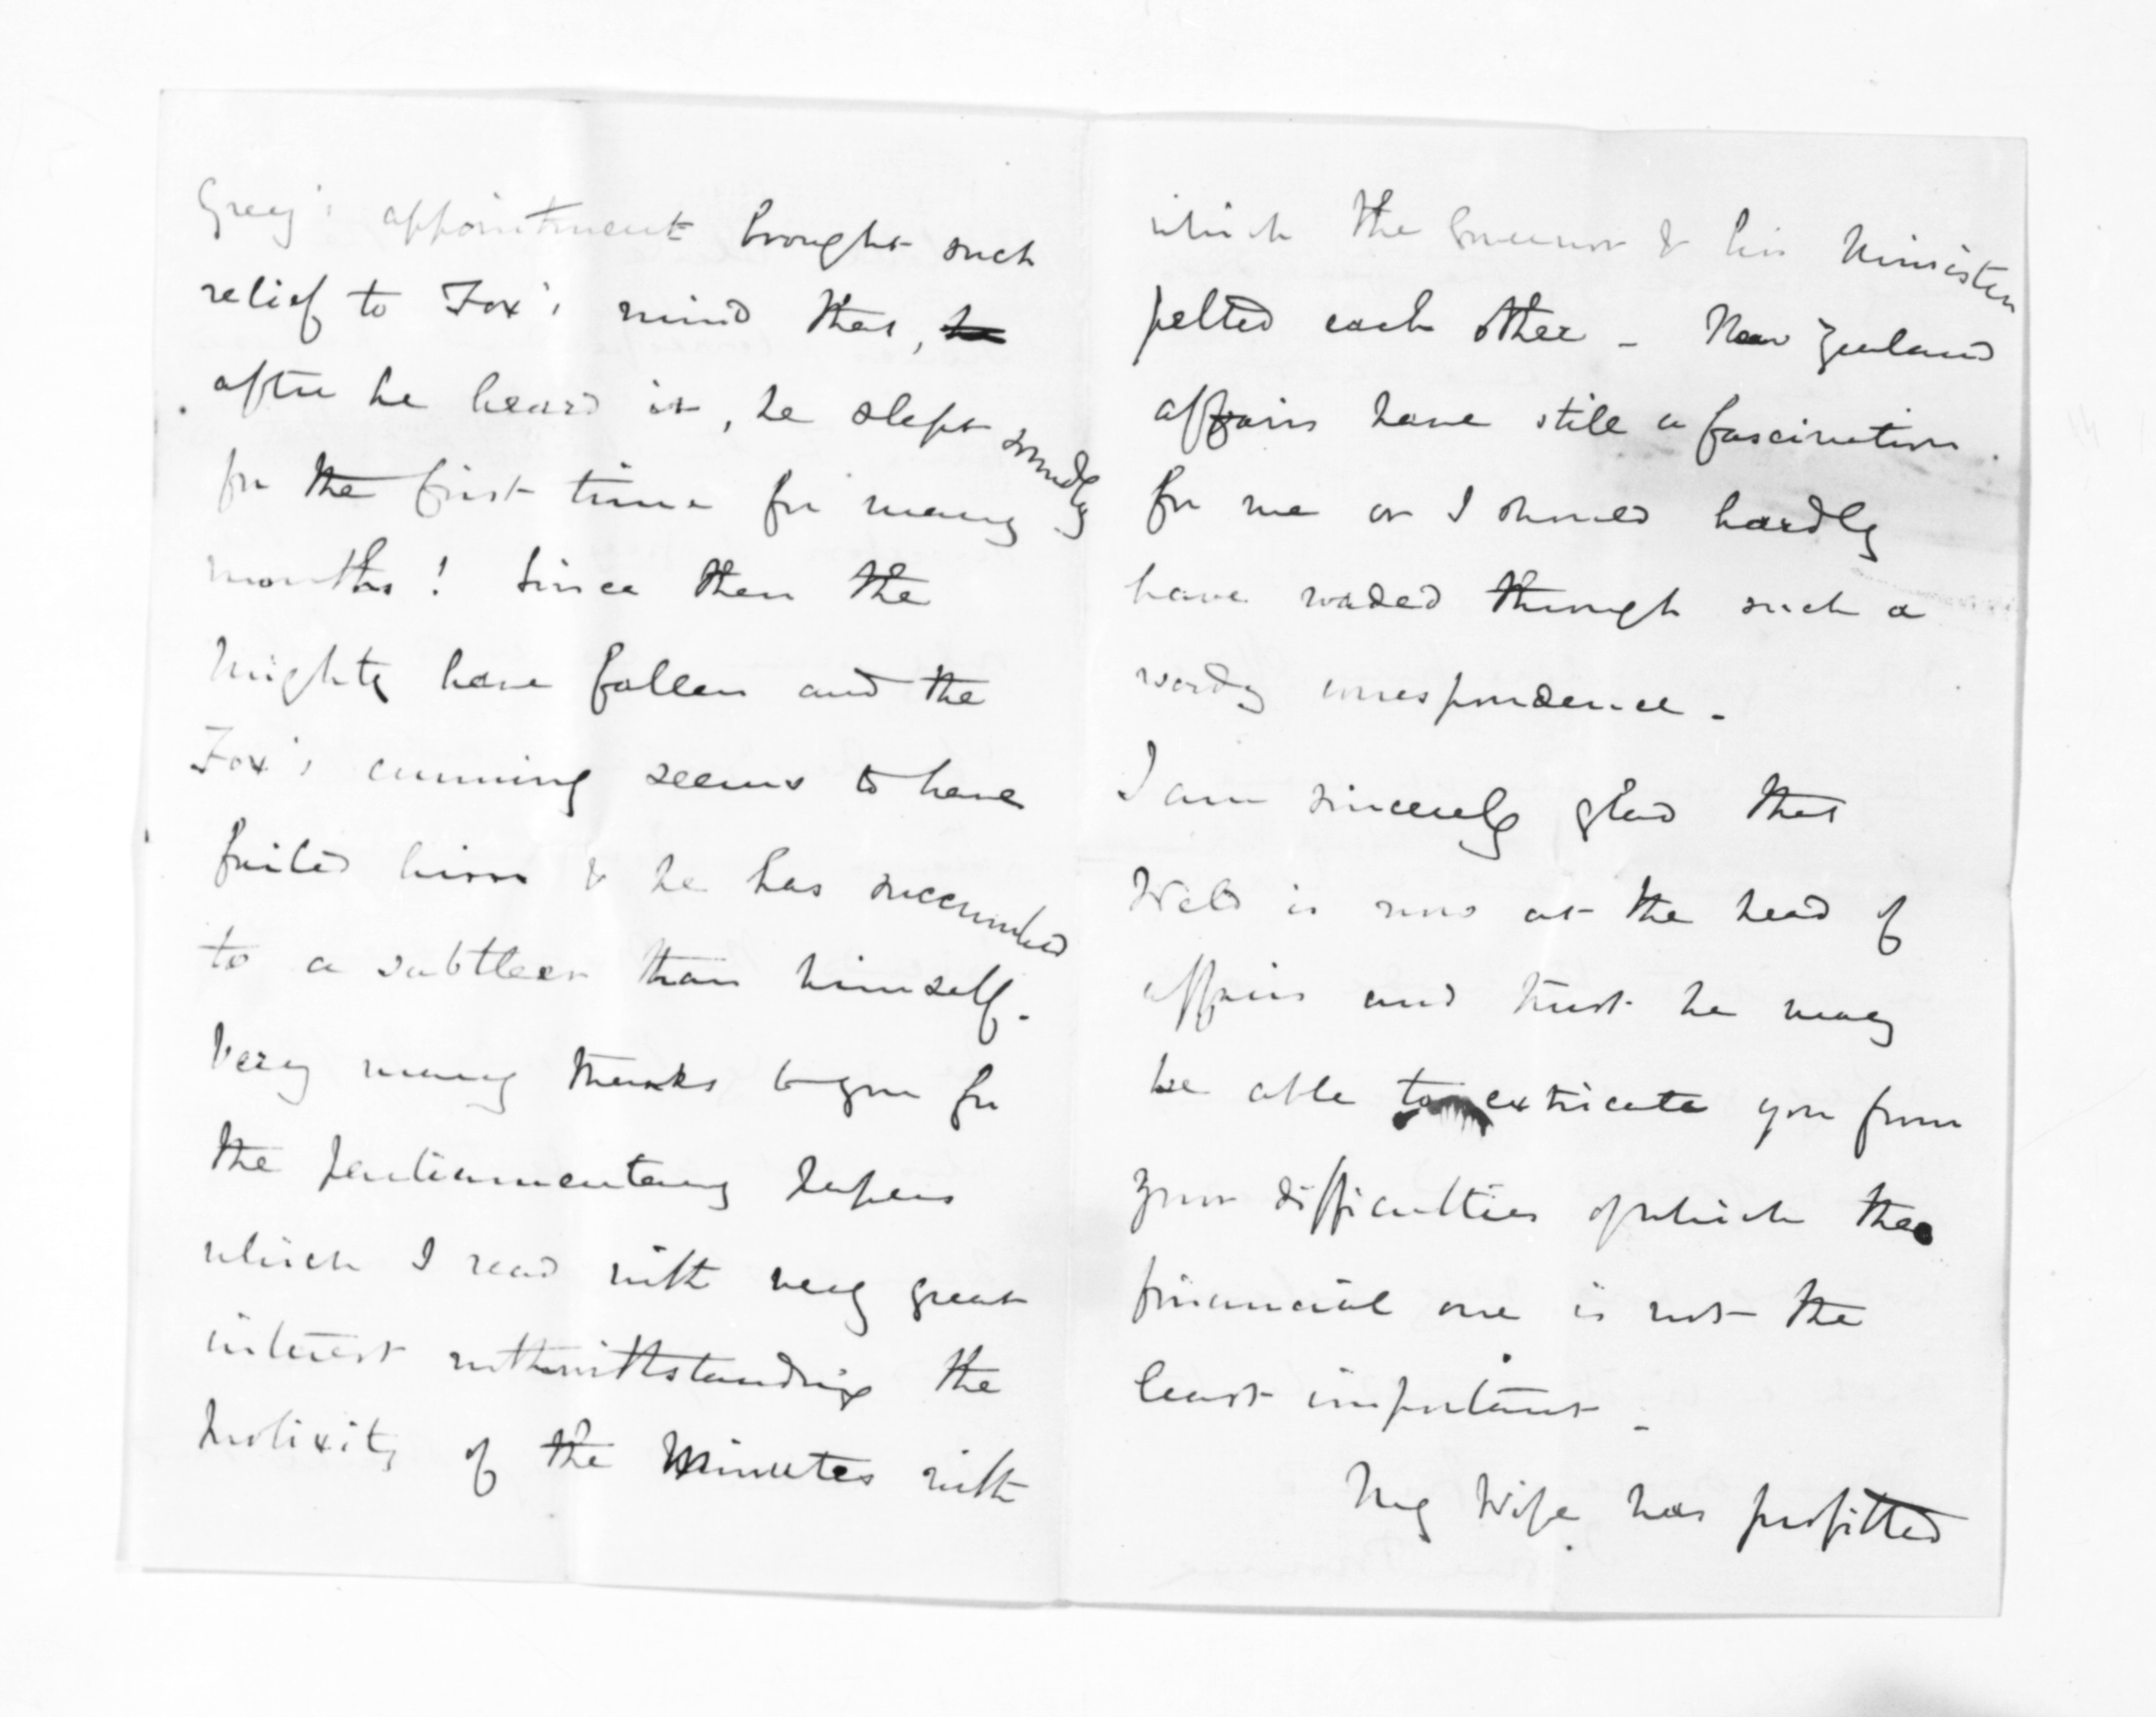 Grey's appointment brought such
relief to Fox's mind that, he
after he heard it, he slept soundly
for the first time for many
months! Since then the
Mighty have fallen and the
Fox's cunning seems to have
failed him & he has succumbed
to a subtleer than himself.
Very many thanks to you for
the parliamentary papers
which I read with very great
interest notwithstanding the
prolixity of the Minutes with
which the Governor & his Ministers
pelted each other - New Zealand
affairs have still a fascination
for me or I should hardly
have waded through such a
wordy correspondence -
I am sincerely glad that
Weld is now at the head of
affairs and trust he may
be able to extricate you from
your difficulties of which the
financial one is not the
least important -
My Wife has profitted